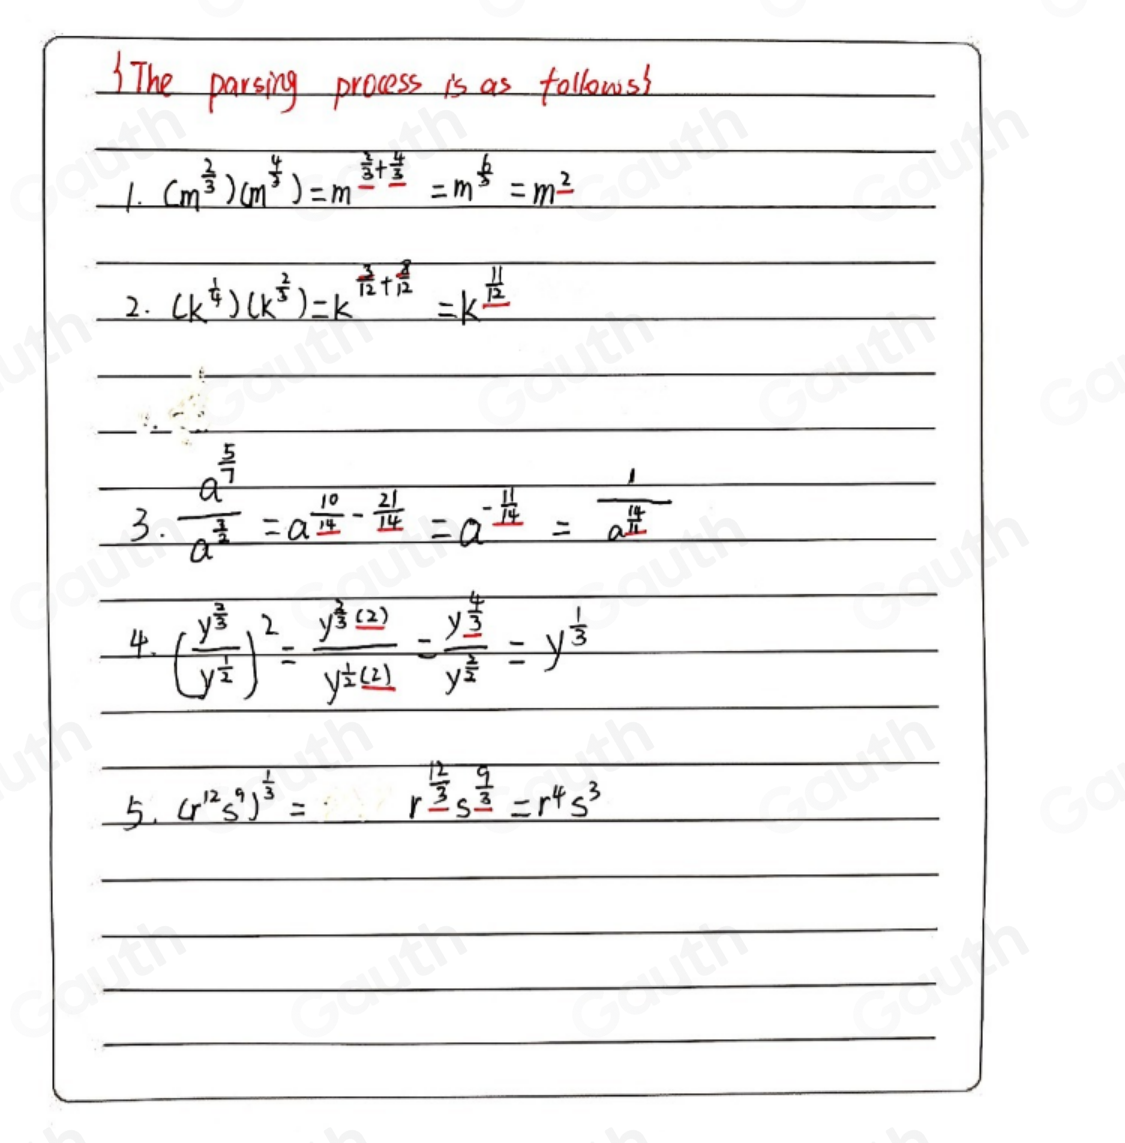 {The parsing process is as follows}
1. (m^{2/3})(m^{4/3}) = m^{2/3+4/3} = m^{6/3} = m^2
2. (k^{1/4})(k^{2/3}) = k^{3/12+8/12} = k^{11/12}
3. a^{5/7}/a^{3/2} = a^{10/14 - 21/14} = a^{-11/14} = 1/a^{14/11}
4. (y^{2/3}/y^{1/2})^2 = y^{2/3(2)}/y^{1/2(2)} = y^{4/3}/y^{2/2} = y^{1/3}
5. (r^{12}s^9)^{1/3} = r^{12/3}s^{9/3} = r^4s^3
Gauth